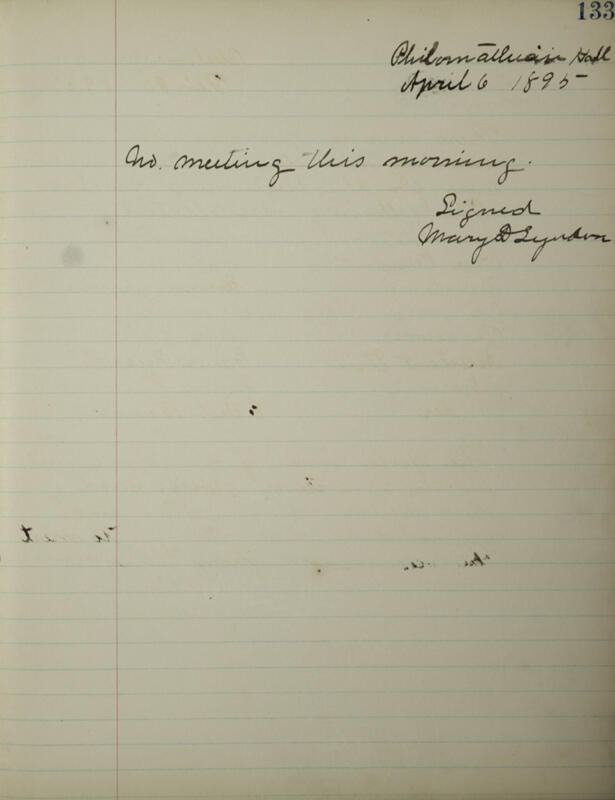 133
Philomathean Hall
April 6 1895
No. meeting this morning.
Signed
Mary D Lyndon